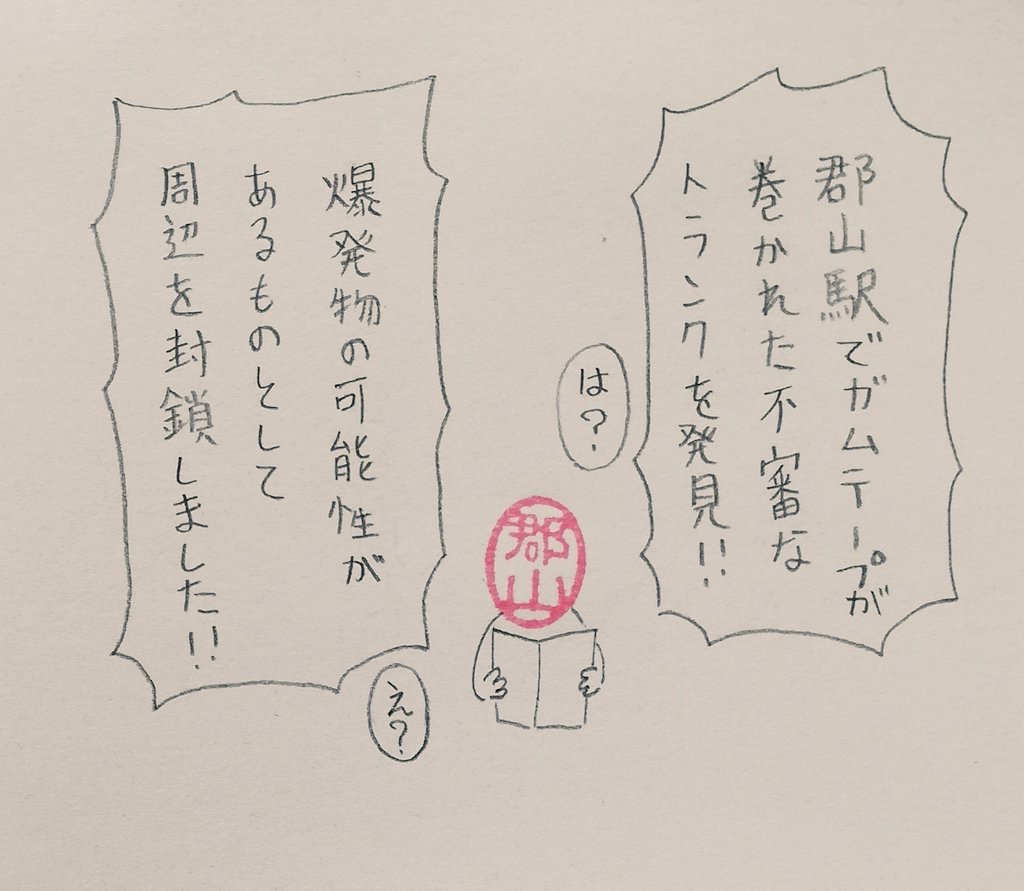 郡山駅でガムテープが
巻かれた不審な
トランクを発見!!
は?
郡山
爆発物の可能性が
あるものとして
周辺を封鎖しました!!
え?